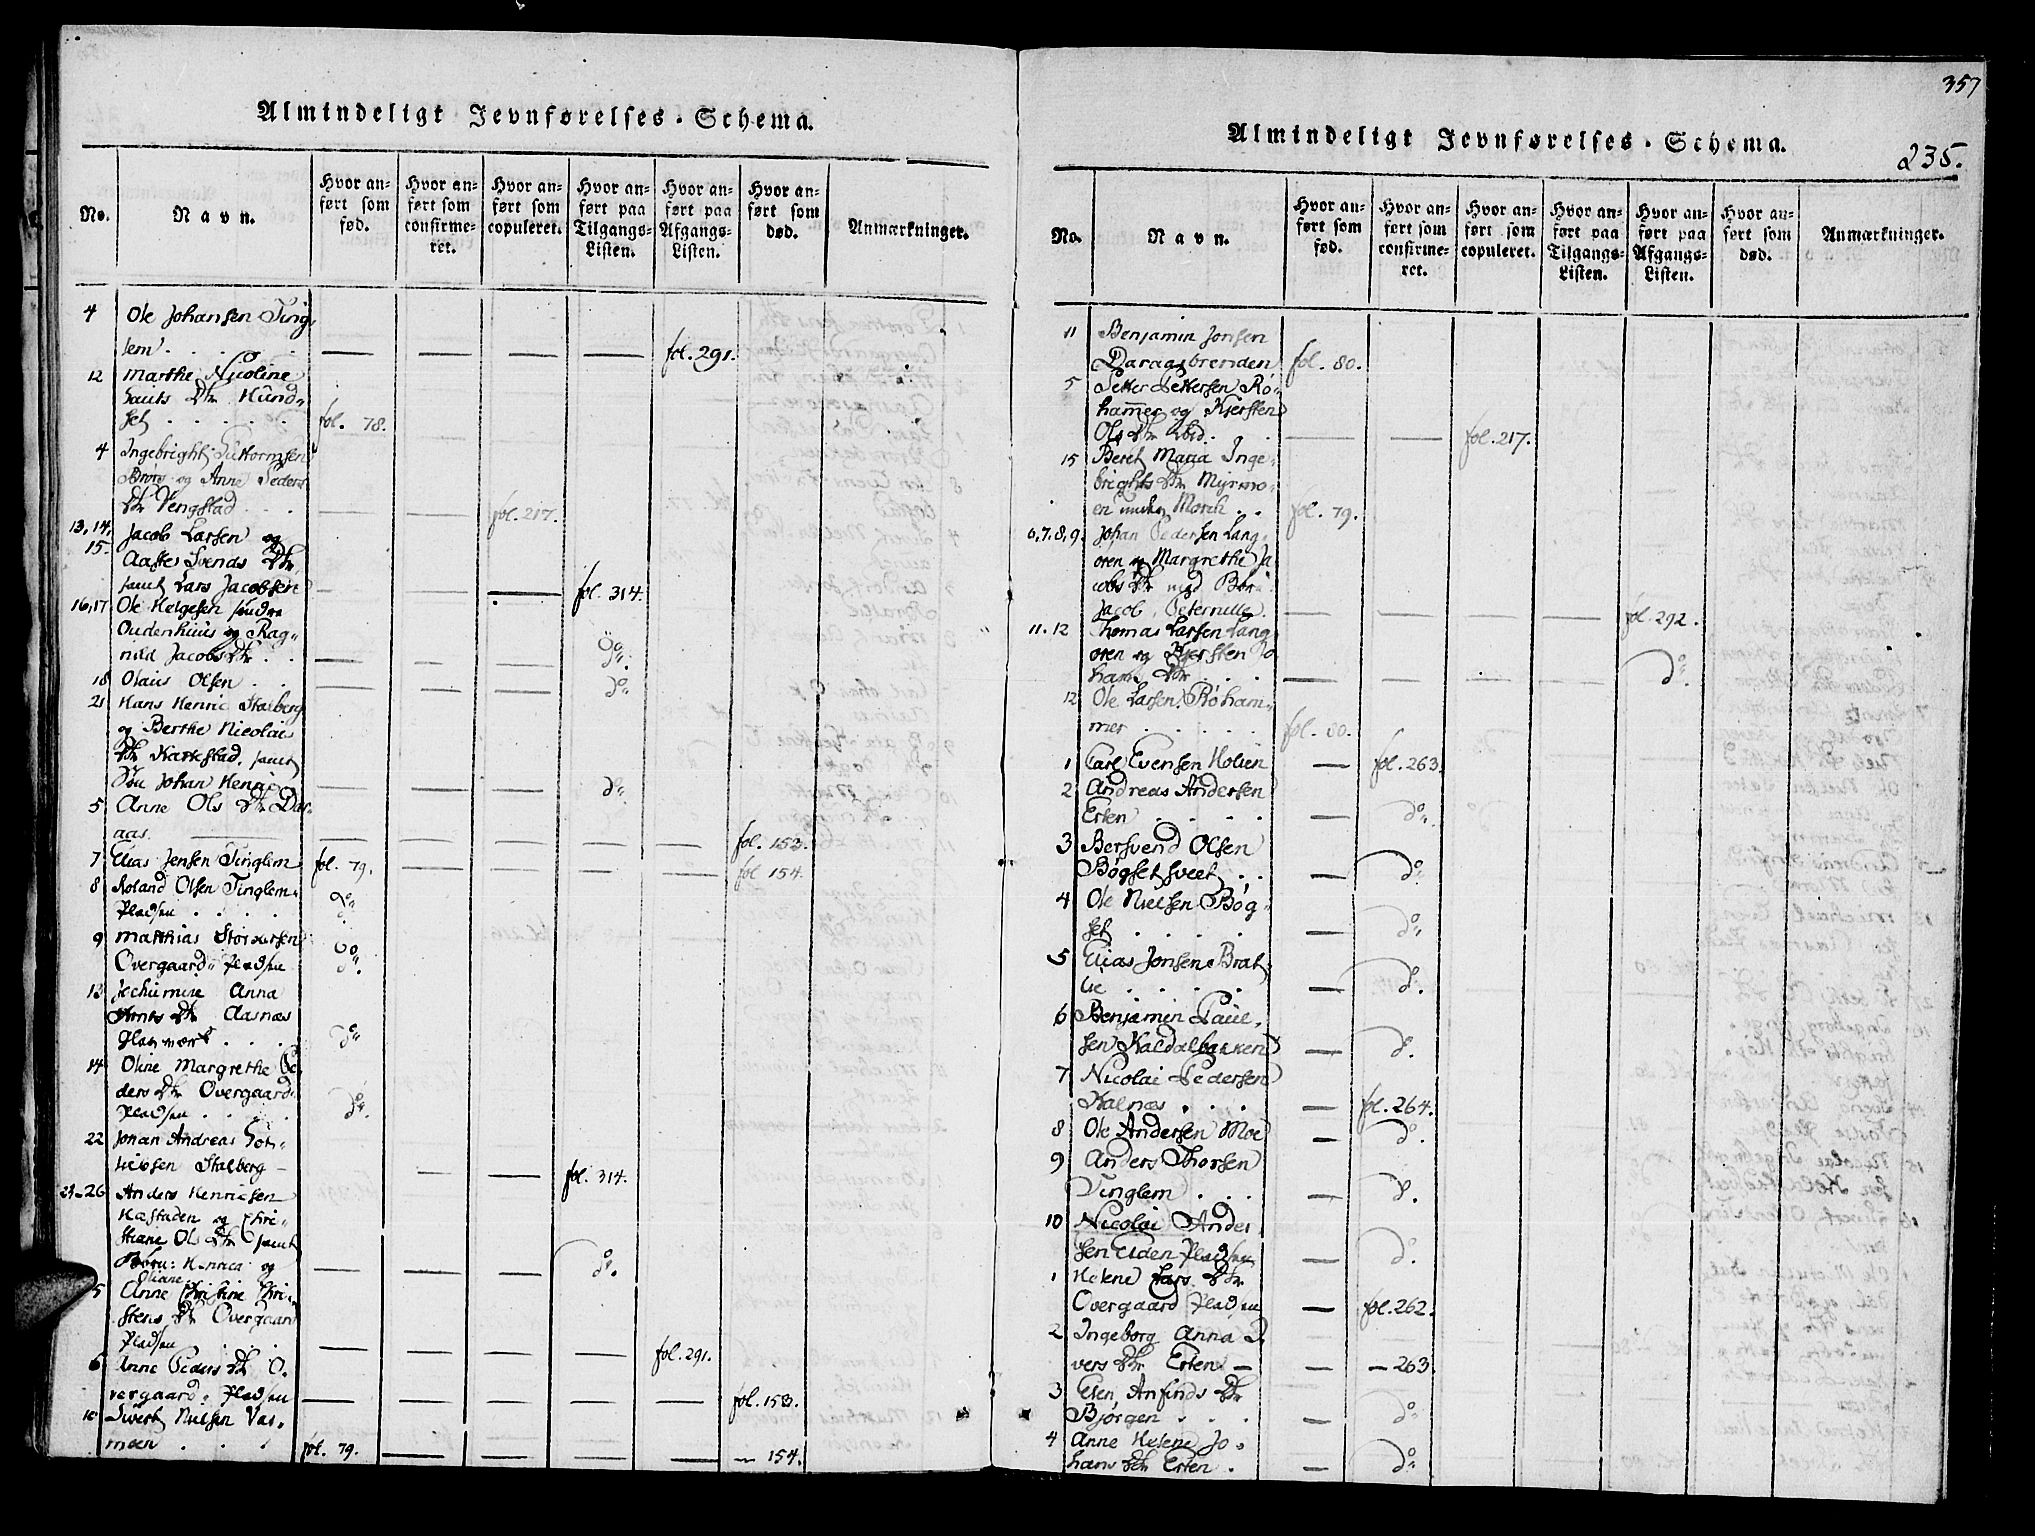 Almindeligt Jevnførelses-Schema.
No. Navn. Hvor anført som fød. Hvor anført som confirmeret. Hvor anført som copuleret. Hvor anført paa Tilgangs-Listen. Hvor anført paa Afgangs-Listen. Hvor anført som død. Anmærkninger.
4 Ole Johansen Ting-
lem . . . — — — — fol. 291.
12 Marthe Nicoline
Dtr Hund-
set . . . . . fol. 78.
4 Ingebright Guttormsen
Brørs og Anne Peders
Dtr Vengstad . . — — fol. 217.
13, 14, Jacob Larsen og
15. Aaste Svends Dtr
samt Lars Jacobsen — — — fol. 314.
16, 17 Ole Helgesen søndre
Oudenhuus og Rag-
nild Jacobs Dtr . . — — — do
18 Olaus Olsen . . — — — do
21 Hans Henric Stalberg
og Berthe Nicolai
Dtr Karkestad, samt
Søn Johan Henric — — — do
5 Anne Ols Dtr Dar-
aas. — — — — — fol. 153.
7 Elias Jensen Tinglem fol. 79. — — — — fol. 154.
8 Roland Olsen Tinglem-
Pladsen . . . . do
9 Matthias Storversen
Overgaards Pladsen do
13 Jochumine Anna
Arnts Dtr Aasnæs
Glasværk . . . do
14 Oline Margrethe Pe-
ders Dtr Overgaards
Pladsen . . . . do.
22 Johan Andreas Got-
liebsen Stalberg — — — fol. 314.
23-26 Anders Henricsen
Hæstaden og Chri-
stiane Ols Dtr samt
Børn: Henrica og
Oliane — — — do.
5 Anne Christine Chri-
stens Dtr Overgaard
Pladsen — — — — fol. 291.
6 Anne Peders Dtr O-
vergaards Pladsen — — — — — fol. 153.
10 Sivert Nielsen Vas-
moen . . . fol. 79. — — — — — 154.
357
Almindeligt Jevnførelses-Schema.
235.
No. Navn. Hvor anført som fød. Hvor anført som confirmeret. Hvor anført som copuleret. Hvor anført paa Tilgangs-Listen. Hvor anført paa Afgangs-Listen. Hvor anført som død. Anmærkninger.
11 Benjamin Jonsen
Daraasbrenden fol. 80.
5 Petter Pettersen Rø-
hammer og Kjersten
Ols Dtr ibid. . — — fol. 217.
15 Beret Maria Inge-
brights Dtr Myrmo-
en under Morch . . fol. 79.
6, 7, 8, 9. Johan Pedersen Lang-
øren og Margrethe Ja-
cobs Dtr med Børn
Jacob, Peternille. — — — — fol. 292.
11. 12 Thomas Larsen Lang-
øren og Kjersten Jo-
hans Dtr . . . — — — — do.
12 Ole Larsen Røham-
mer . . . . . fol. 80.
1 Carl Evensen Holien — fol. 263.
2 Andreas Andersen
Erten . . . . do.
3 Bersvend Olsen
Bøgsetsveet . . — do
4 Ole Nielsen Bøg-
set . . . . — do
5 Elias Jonsen Brat-
lie . . . . — do.
6 Benjamin Paul-
sen Kaldalbakken — do.
7 Nicolai Pedersen
Kalnæs . . . — fol. 264.
8 Ole Andersen Moe — do
9 Anders Thorsen
Tinglem . . . — do.
10 Nicolai Ander
sen Elden Pladsen — do.
1 Helene Lars Dtr
Overgaard Pladsen — fol. 262.
2 Ingeborg Anna I-
vers Dtr Erten — — — 263.
3 Elen Anfinds Dtr
Bjørgen . . . . — do
4 Anne Helene Jo-
hans Dtr Erten . — do